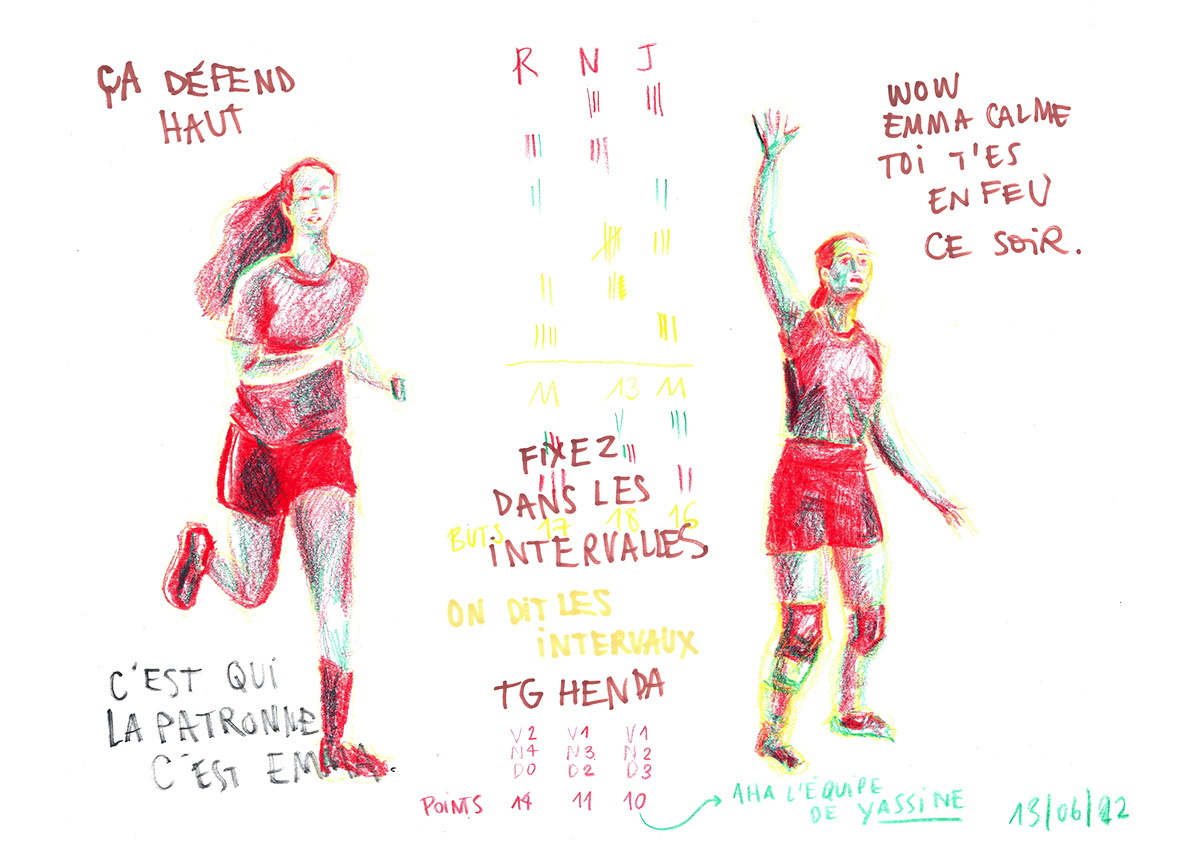 ÇA DÉFEND
HAUT
R N J
WOW
EMMA CALME
TOI T'ES
EN FEU
CE SOIR.
11 13 11
FIXEZ
DANS LES
BUTS 17 18 16
INTERVALLES
ON DIT LES
INTERVAUX
TG HENDA
C'EST QUI
LA PATRONNE
C'EST EMMA.
V2 V1 V1
N4 N3 N2
D0 D2 D3
POINTS 14 11 10
AHA L'ÉQUIPE
DE YASSINE
13/06/22